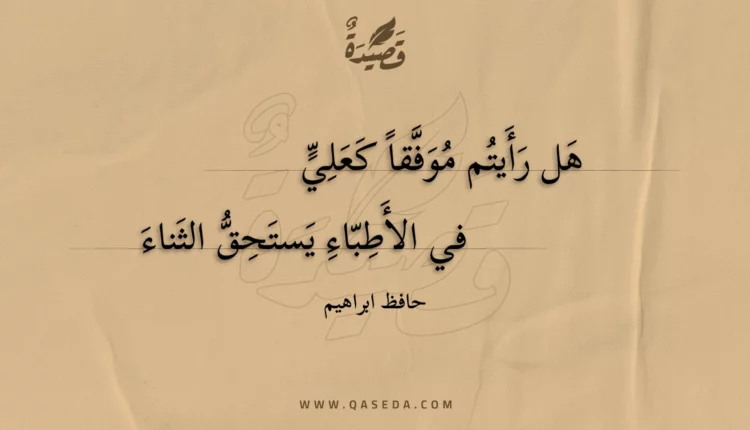 قَصِيدَةٌ
هَل رَأَيتُم مُوَفَّقاً كَعَلِيٍّ
في الأَطِبّاءِ يَستَحِقُّ الثَناءَ
حافظ ابراهيم
WWW.QASEDA.COM